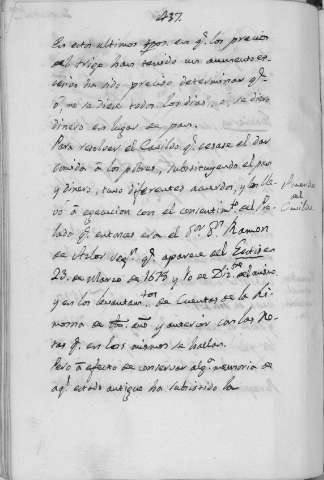 437.
En estos ultimos tpos. en q.e los precios
del trigo han tenido un aumento es-
ha sido preciso determinar q.e
ó, no se diese todos los dias, ó, se diese
dinero en lugar de pan.
Para resolver el Cavildo q.e cesase el dar
comida á los pobres, substituyendo el pan
y dinero, tuvo diferentes acuerdos, y los lle-
vó á egecucion con el consentim.to del Pre-
lado q.e entonces era el S.or D.n Ramon
de Azlor seg.n q.e aparece del
23. de Marzo de 1675 y 10 de
y en los levantam.tos de Cuentas de la Li-
mosna de dho. año y anterior, con las No-
tas q.e en los mismos se hallan.
Pero á efecto de conservar alg.a memoria de
aq.l estado antiguo ha subsistido la
Acuerdo
del
Cavildo